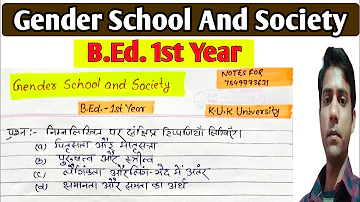 Gender School And Society
B.Ed. 1st Year
NOTES FOR
Gender School and Society
B.Ed.-1st Year
K.U.K University
प्रश्न:- निम्नलिखित पर संक्षिप्त टिप्पणियां लिखिए।
(a) पितृसत्ता और मातृसत्ता
(b) पुरुषत्व और स्त्रीत्व
(c) लैंगिकता और लिंग-भेद में अंतर
(d) समानता और समता का अर्थ